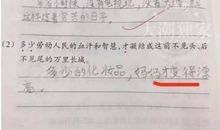 这样度着贫苦的日子。
(2) 多少劳动人民的血汗和智慧,才凝结成这前不见头、后
不见尾的万里长城。
多少的化妆品,妈妈才变得漂
亮。